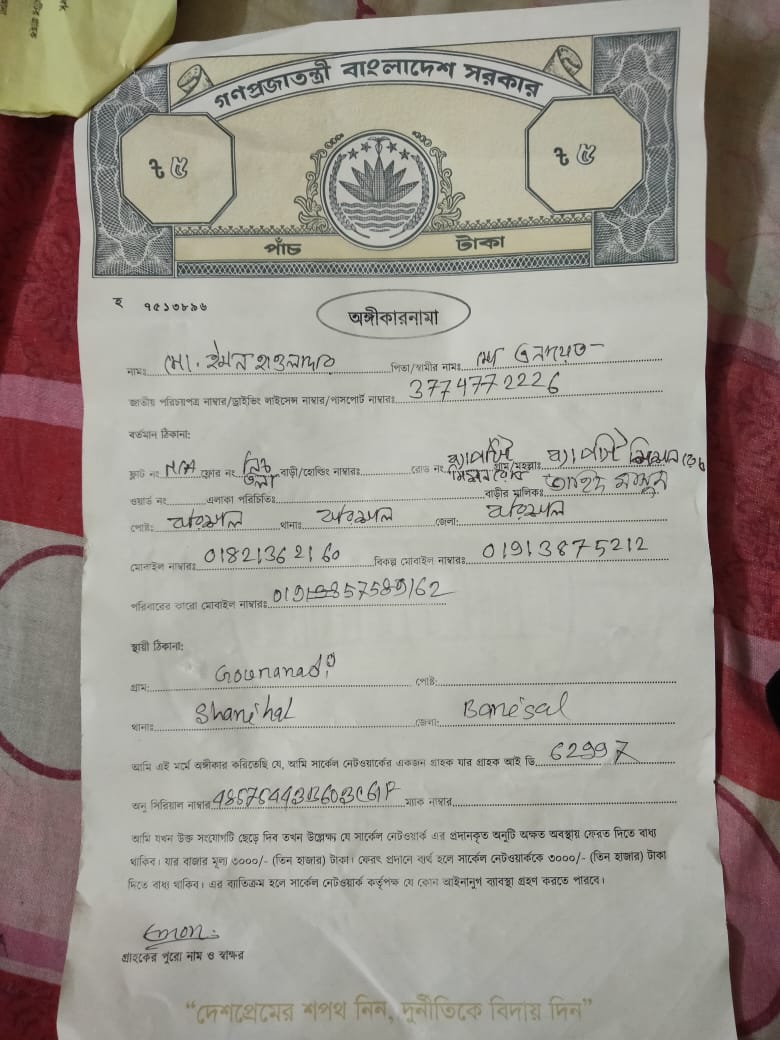 গণপ্রজাতন্ত্রী বাংলাদেশ সরকার
৳ ৫ ৳ ৫
পাঁচ টাকা
হ ৭৫১৩৮৯৬
অঙ্গীকারনামা
নামঃ মো. ইমন হাওলাদার পিতা/স্বামীর নামঃ মোঃ
জাতীয় পরিচয়পত্র নাম্বার/ড্রাইভিং লাইসেন্স নাম্বার/পাসপোর্ট নাম্বারঃ 3774772226
বর্তমান ঠিকানা:
ফ্লাট নং N/A ফ্লোর নং নিচ তলা বাড়ী/হোল্ডিং নাম্বারঃ রোড নং ব্যাপটিস্ট মিশন রোড গ্রাম/মহল্লাঃ ব্যাপটিস্ট মিশন রোড
ওয়ার্ড নং এলাকা পরিচিতিঃ বাড়ীর মালিকঃ
পোষ্টঃ বরিশাল থানাঃ বরিশাল জেলা: বরিশাল
মোবাইল নাম্বারঃ 01821362160 বিকল্প মোবাইল নাম্বারঃ 01913875212
পরিবারের কারো মোবাইল নাম্বারঃ
স্থায়ী ঠিকানা:
গ্রাম: Gournanadi পোষ্ট:
থানাঃ Sharikal জেলা: Barisal
আমি এই মর্মে অঙ্গীকার করিতেছি যে, আমি সার্কেল নেটওয়ার্কের একজন গ্রাহক যার গ্রাহক আই ডি 62997
অনু সিরিয়াল নাম্বার ম্যাক নাম্বার
আমি যখন উক্ত সংযোগটি ছেড়ে দিব তখন উল্লেক্ষ্য যে সার্কেল নেটওয়ার্ক এর প্রদানকৃত অনুটি অক্ষত অবস্থায় ফেরত দিতে বাধ্য
থাকিব। যার বাজার মূল্য ৩০০০/- (তিন হাজার) টাকা। ফেরৎ প্রদানে ব্যর্থ হলে সার্কেল নেটওয়ার্ককে ৩০০০/- (তিন হাজার) টাকা
দিতে বাধ্য থাকিব। এর ব্যতিক্রম হলে সার্কেল নেটওয়ার্ক কর্তৃপক্ষ যে কোন আইনানুগ ব্যাবস্থা গ্রহণ করতে পারবে।
Emon
গ্রাহকের পুরো নাম ও স্বাক্ষর
“দেশপ্রেমের শপথ নিন, দুর্নীতিকে বিদায় দিন”